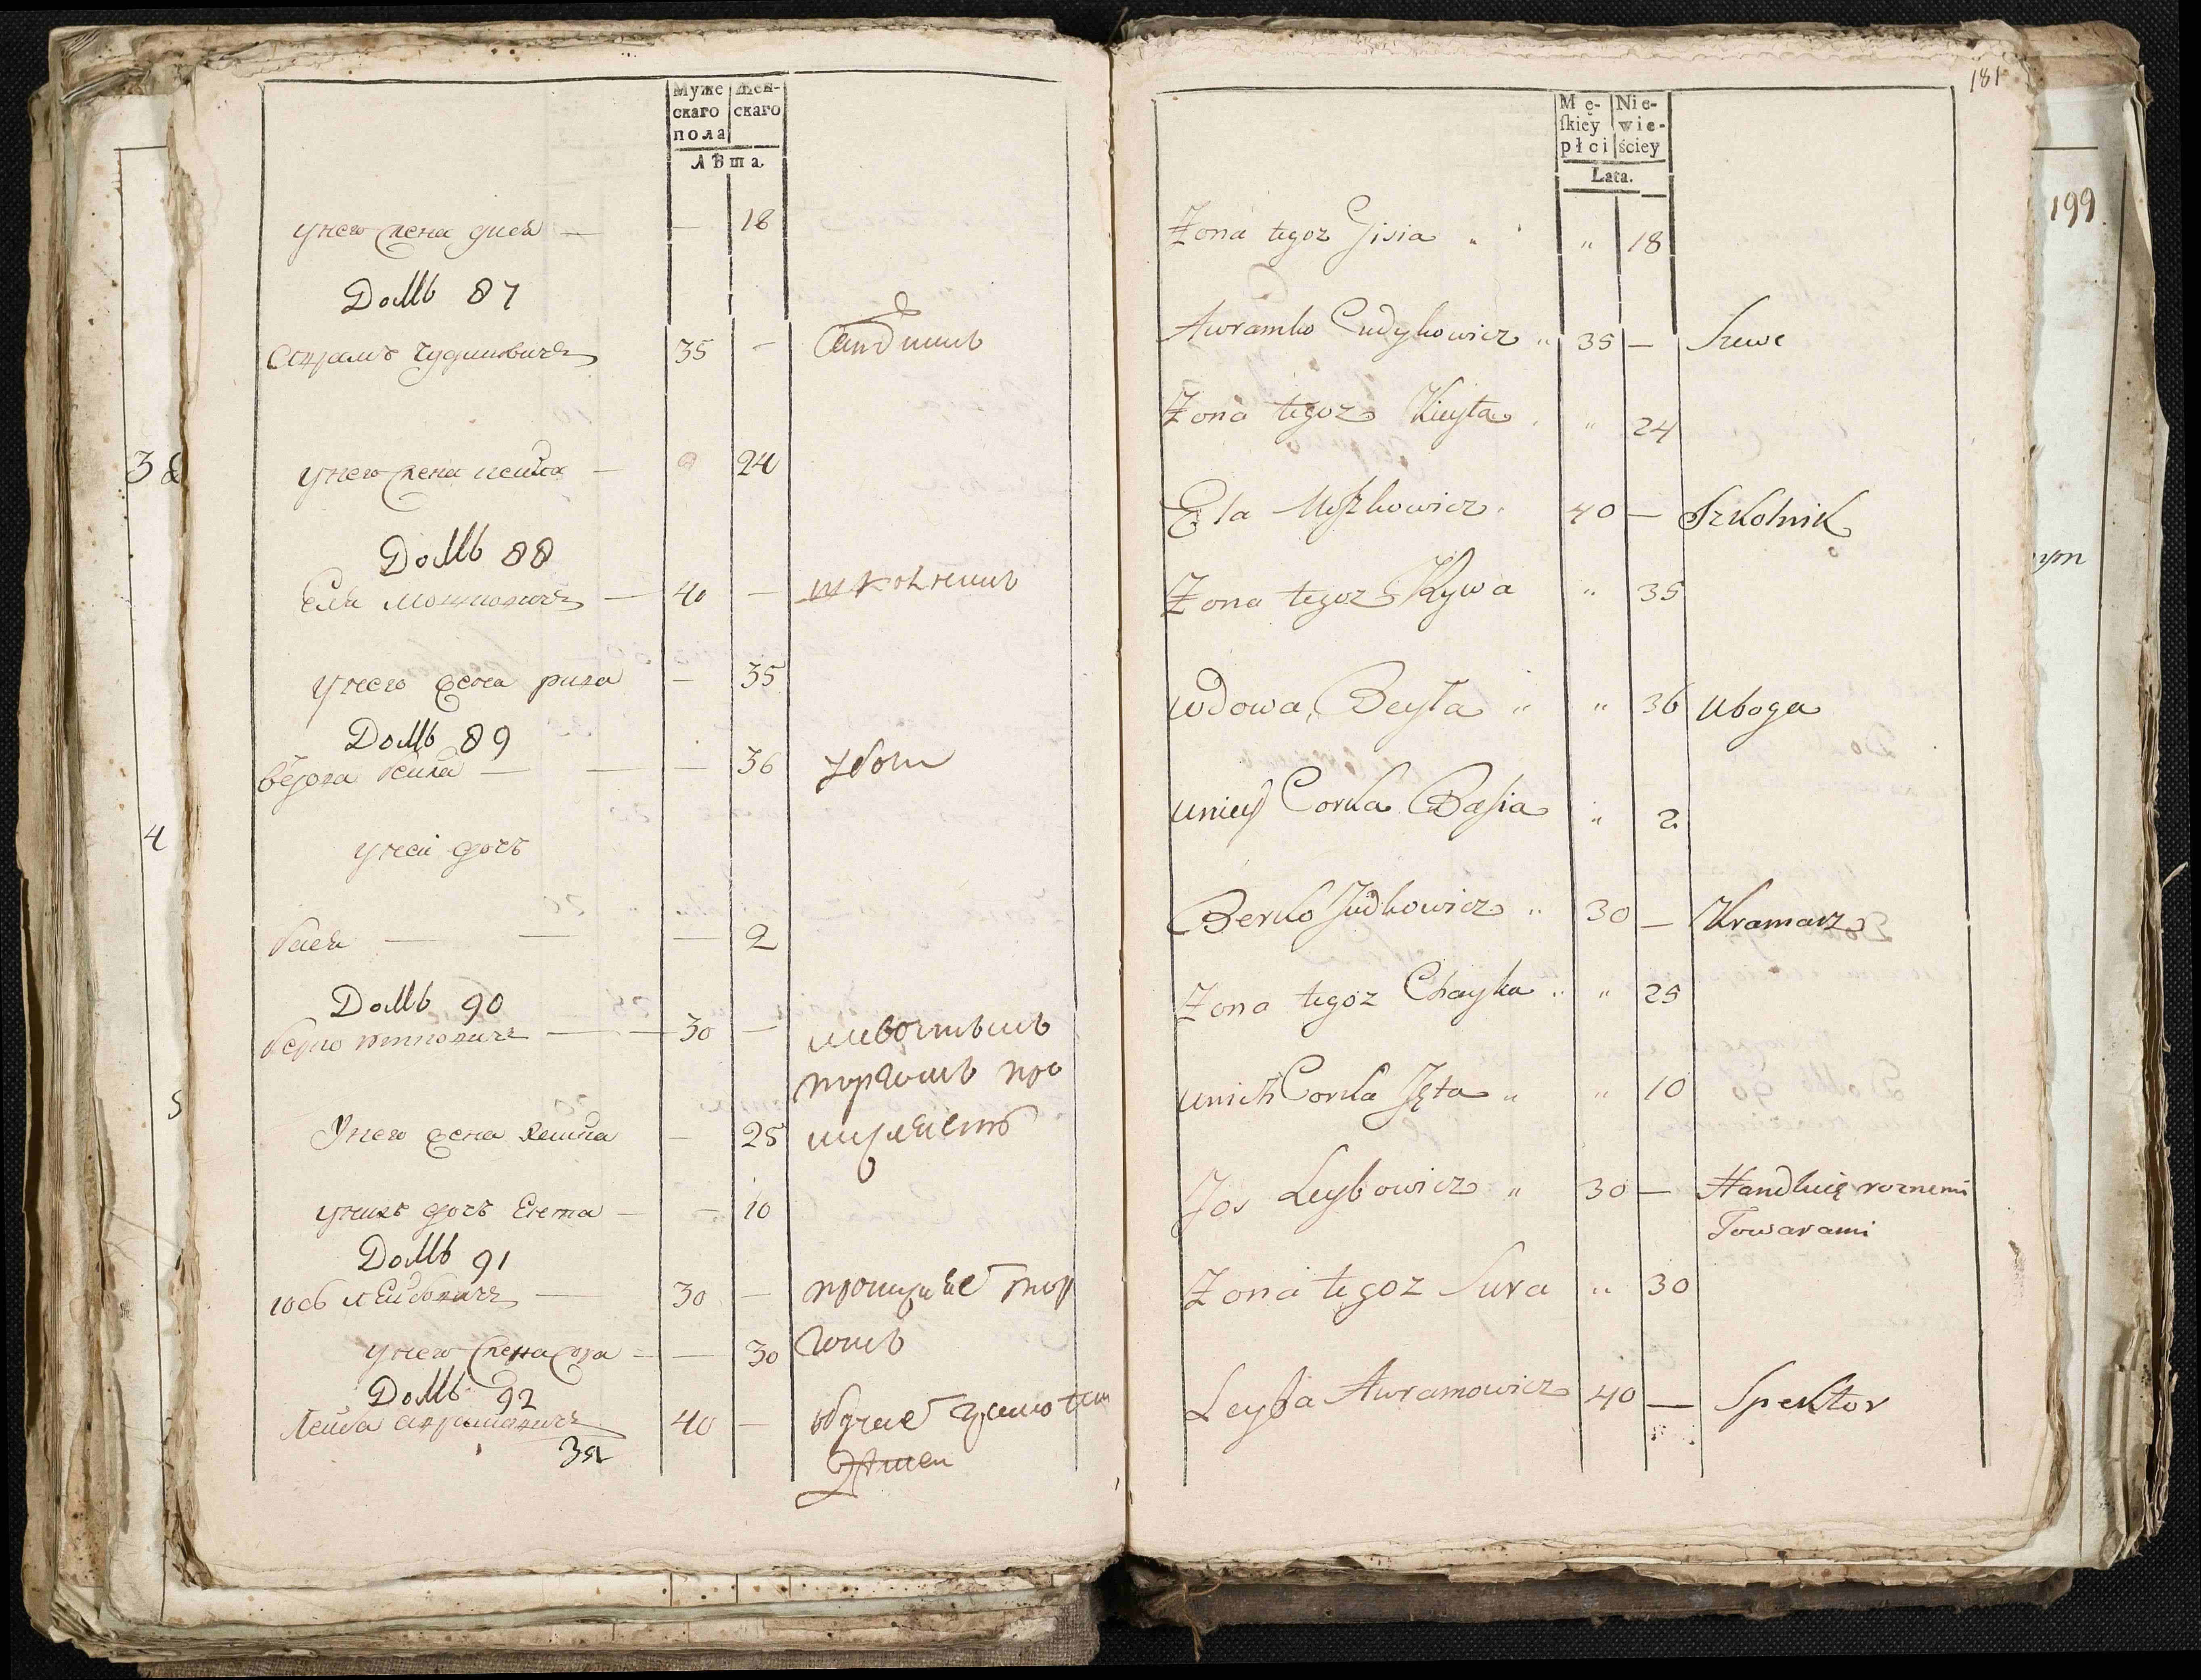 Муже
скаго
пола
Жен-
скаго
Лѣта
у него жена дися — — 18
Домъ 87
Аврамъ Чудиковичъ 35 —
у него жена кейла — 24
Домъ 88
Еля Мошковичъ — 40 — школникъ
у него жена рива — 35
Домъ 89
вдова бейла — — — 36 убога
у неи дочь
бася — — — 2
Домъ 90
берко юдковичъ — — 30 —
У него жена хайка — 25
у нихъ дочь Ента — — 10
Домъ 91
іось лейбовичъ — 30 — промишляе тор
гомъ
у него жена сура — — 30
Домъ 92
Лейба аврамовичъ 40 — обучае
детей
Зя
181
Mę-
ſkiey
płci
Nie-
wie-
ściey
Lata.
Zona tegoz Gisia " " 18
Awramko Cudykowicz " 35 — Szewc
Zona tegoz Kieyła " 24
Ela Moszkowicz 40 — Szkolnik
Zona tegoz Rywa " 35
wdowa Beyła " " 36 uboga
uniey Corka Basia " 2
Berko Judkowicz " 30 — Kramarz
Zona tegoz Chayka " " 25
unich Corka Jęta " " 10
Jos Leybowicz " 30 — Handluię roznemi
Towarami
Zona tegoz Sura " 30
Leyba Awramowicz 40 — Spektor
199
3
4
5
ym